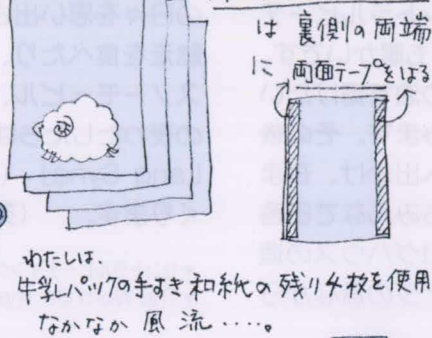 は 裏側の両端
に 両面テープをはる
わたしは、
牛乳パックの手すき和紙の残り4枚を使用
なかなか 風流……。